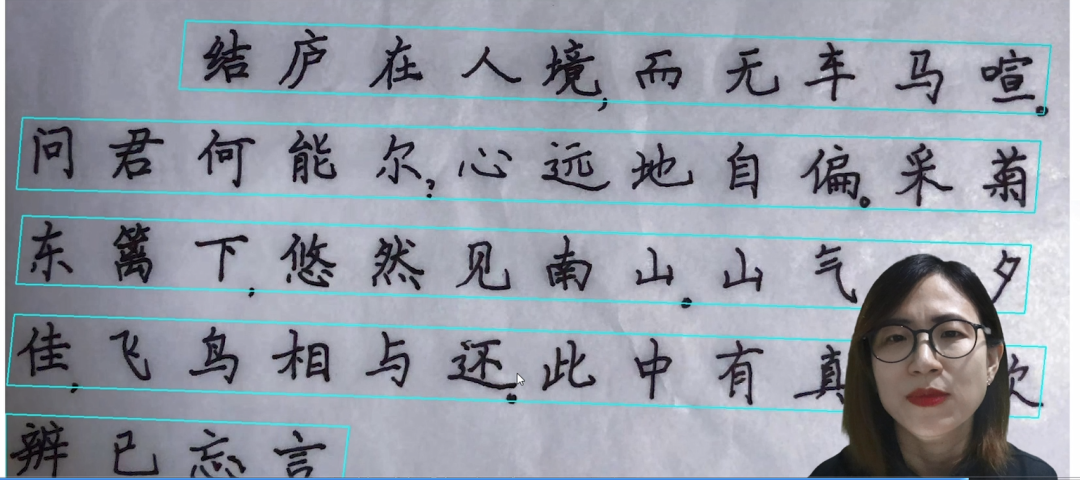 结庐在人境，而无车马喧。
问君何能尔？心远地自偏。采菊
东篱下，悠然见南山。山气夕
佳，飞鸟相与还。此中有真欲
辨已忘言